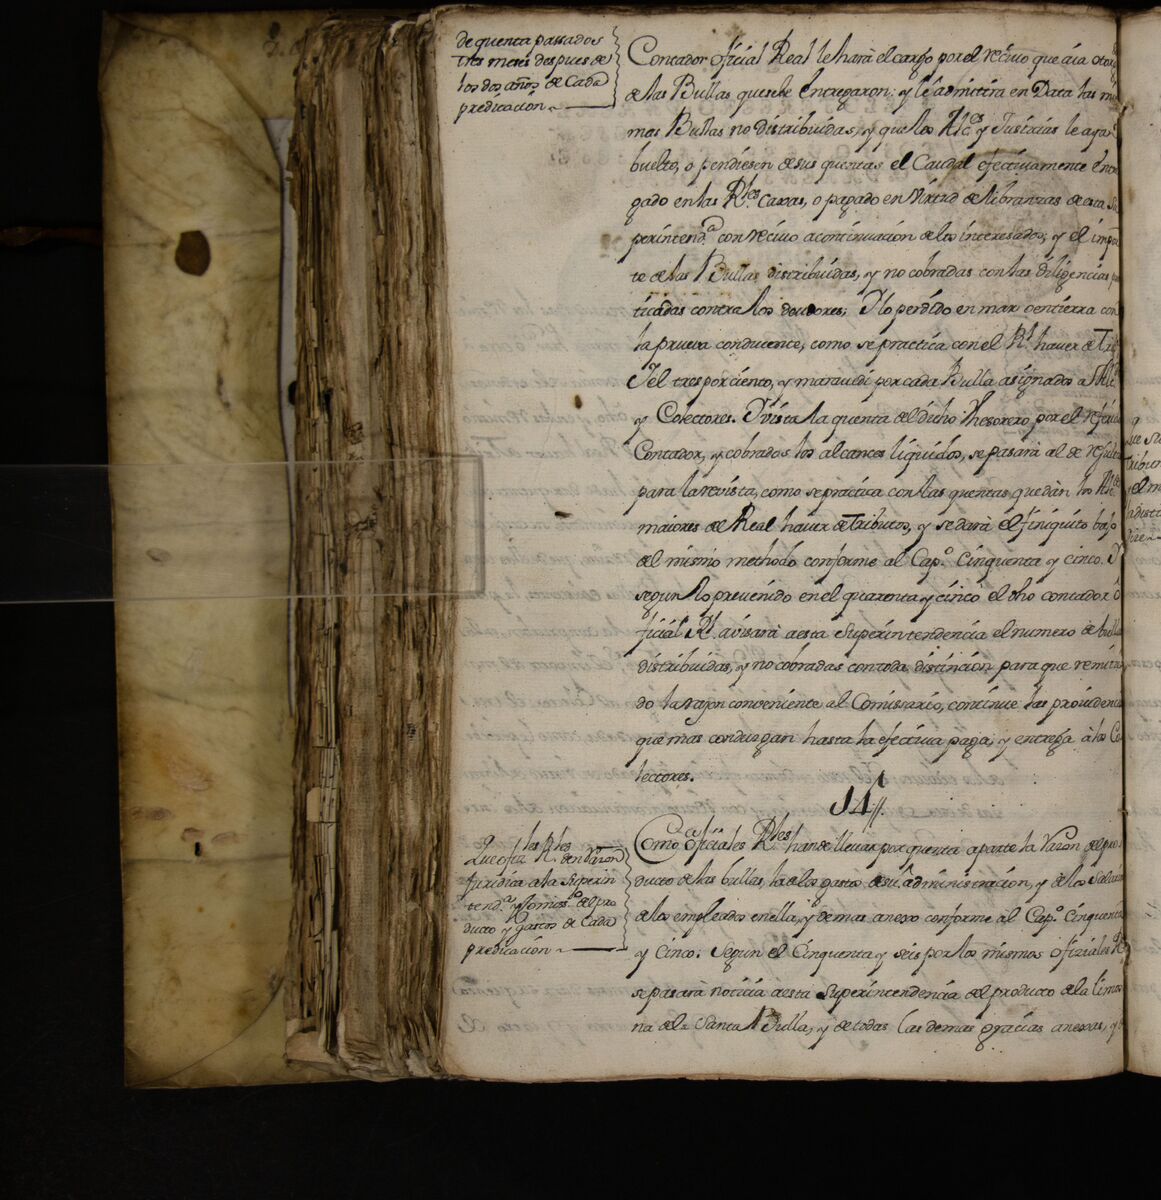 de quenta passados
tres meses despues de
los dos años de Cada
predicación
Contador oficial Real le hará el cargo por el reciuo que aia otor
de las Bullas que se le entregaron; y le admitira en Data las mis
mas Bullas no distribuidas, y que los Alc.es y Justicias le aya
buelto, o pendiesen de sus quentas el Caudal efectiuamente entre
gado en las R.les Caxas, o pagado en virtud de libranzas de esta Su
perintend.a con reciuo a continuación de los interesados; y el impor
te de las Bullas distribuidas, y no cobradas con las diligencias
ticadas contra los deudores; Y lo perdido en mar o en tierra con
la prueva conducente, como se practica con el R.l haver de Tri
Y el tres por ciento, y maravedi por cada Bulla asignados a
y Colectores. Y vista la quenta del dicho Thesorero por el
Contador, y cobrados los alcances liquidos, se pasará al de
para la revista, como se practica con las quentas que dàn los
maiores de Real haver de Tributos, y se darà el finiquito bajo
del mismo methodo conforme al Cap.o Cinquenta y cinco. Y
segun lo prevenido en el quarenta y cinco el dho contador o
ficial R.l avisará a esta Superintendencia el numero de bullas
distribuidas, y no cobradas con toda distincion para que remitien
do la razon conveniente al Comissario, continue las providencias
que mas conduzgan hasta la efectiva paga, y entrega à los Co
lectores.
14
Que ofiz.les R.les den razon
juridica a la Superin
tend.a y Comos.o del pro
ducto y gastos de Cada
predicación
Como oficiales R.les han de llevar por quenta aparte la razon del pro
ducto de las bullas, la de los gastos de su administracion, y de los Salarios
de los empleados en ella, y demas anexo conforme al Cap.o Cinquenta
y Cinco: Segun el Cinquenta y seis por los mismos oficiales R
se pasarà noticia a esta Superintendencia del producto de la limos
na de la Santa Bulla, y de todas las demas gracias anexas, y